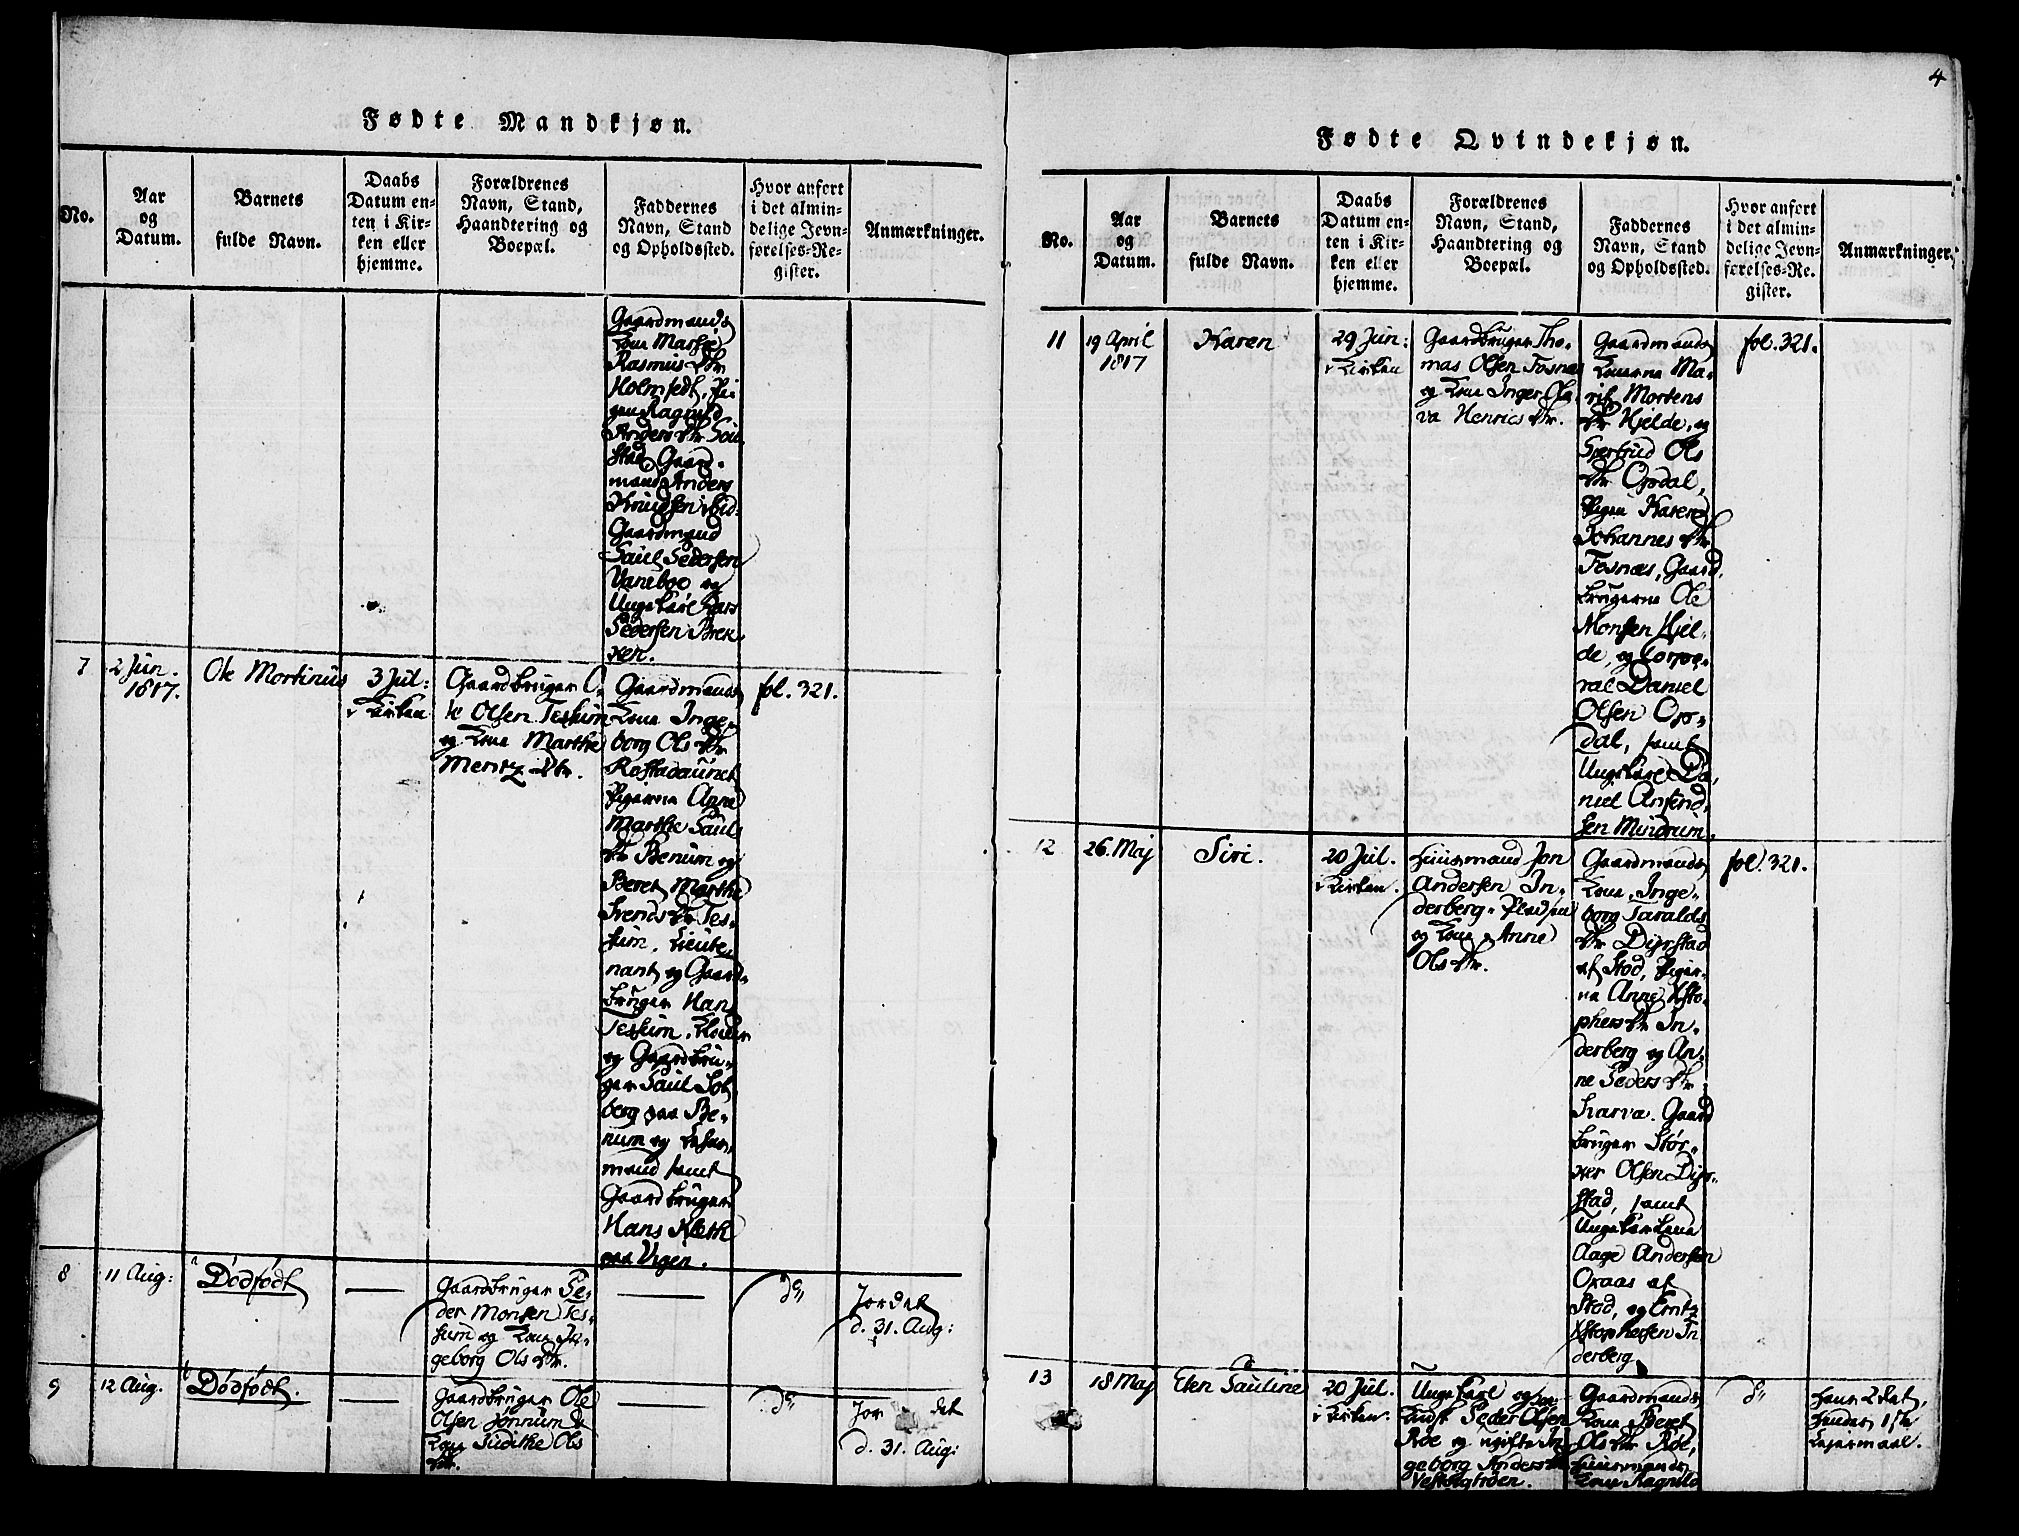 4
Fødte Mandkjøn.
No.
Aar
og
Datum.
Barnets
fulde Navn.
Daabs
Datum en-
ten i Kir-
ken eller
hjemme.
Forældrenes
Navn, Stand,
Haandtering og
Boepæl.
Faddernes
Navn, Stand
og Opholdssted.
Hvor anført
i det almin-
delige Jevn-
førelses-Re-
gister.
Anmærkninger.
Gaardmands
Kone Marthe
Rasmus Dtr
Holmsedt, Pi-
gen Ragnild
Anders Dtr Sau-
stad Gaard-
mand Anders
Knudsen ibid:
Gaardmand
Paul Pedersen
Vaneboe og
Ungekarl Lars
Pedersen Brek-
ken.
7
2 Jun.
1817.
Ole Mortinus
3 Jul:
i Kirken
Gaardbruger O-
le Olsen Tessum
og Kone Marthe
Meritz Dtr.
Gaardmands
Kone Inge-
borg Ols Dtr
Rostadaunet
Pigerne Anne
Marthe Pauls
Dtr Benum og
Beret Marthe
Svends Dtr Tes-
sum. Lieute-
nant og Gaard-
bruger Hans
Tessum, Klokker
og Gaardbru-
ger Paul Sol-
berg paa Be-
num og
mand samt
Gaardbruger
Hans Kleth
paa Vigen.
fol. 321.
8
11 Aug:
Dødfødt
Gaardbruger Pe-
der Monsen Tes-
sum og Kone In-
geborg Ols Dtr.
do
Jordet
d. 31. Aug:
9
12 Aug.
Dødfødt.
Gaardbruger Ole
Olsen Jønnum &
Kone Judithe Ols
Dtr.
do
Jordet
d. 31. Aug:
Fødte Qvindekjøn.
No.
Aar
og
Datum.
Barnets
fulde Navn.
Daabs
Datum en-
ten i Kir-
ken eller
hjemme.
Forældrenes
Navn, Stand,
Haandtering og
Boepæl.
Faddernes
Navn, Stand
og Opholdssted.
Hvor anført
i det almin-
delige Jevn-
førelses-Re-
gister.
Anmærkninger.
11
19 April
1817
Karen
29 Jun:
i Kirken
Gaardbruger Tho-
mas Olsen Fosnæs
og Kone Inger Ola-
va Henrics Dtr.
Gaardmands
Konerne Ma-
rit Mortens
Dtr Hjelde, og
Gjertrud Ols
Dtr Opdal,
Pigen Karen
Johannes Dtr
Fosnæs, Gaard-
brugerne Ole
Monsen Hjel-
de, og Corpo-
ral Daniel
Olsen Op-
dal, samt
Ungekarl Da-
niel Arnfind-
sen Mindrum.
fol. 321.
12
26. Maj
Siri.
20 Jul.
i Kirken.
Huusmand Jon
Andersen In-
derberg-Pladsen
og Kone Anne
Ols Dtr.
Gaardmands
Kone Inge-
borg Taralds
Dtr Dyrstad
af Stod, Piger-
ne Anne Xsto-
phers Dtr In-
derberg og An-
ne Peders Dtr
Gaard
bruger Stør-
ker Olsen Dyr-
stad, samt
Ungekarlene
Aage Andersen
Oxaas af
Stod, og Erntz
Xstophersen In
derberg
fol. 321.
13
18 Maj
Elen Pauline
20 Jul.
i Kirken:
Ungekarl og
Peder Olsen
Røe og ugifte In-
geborg Anders Dtr
Vestbogtrøen.
Gaardmands
Kone Beret
Ols Dtr Røe,
Huusmands
Kone Ragnild
do
Hans 2det,
Hendes 1ste
Lejermaal.